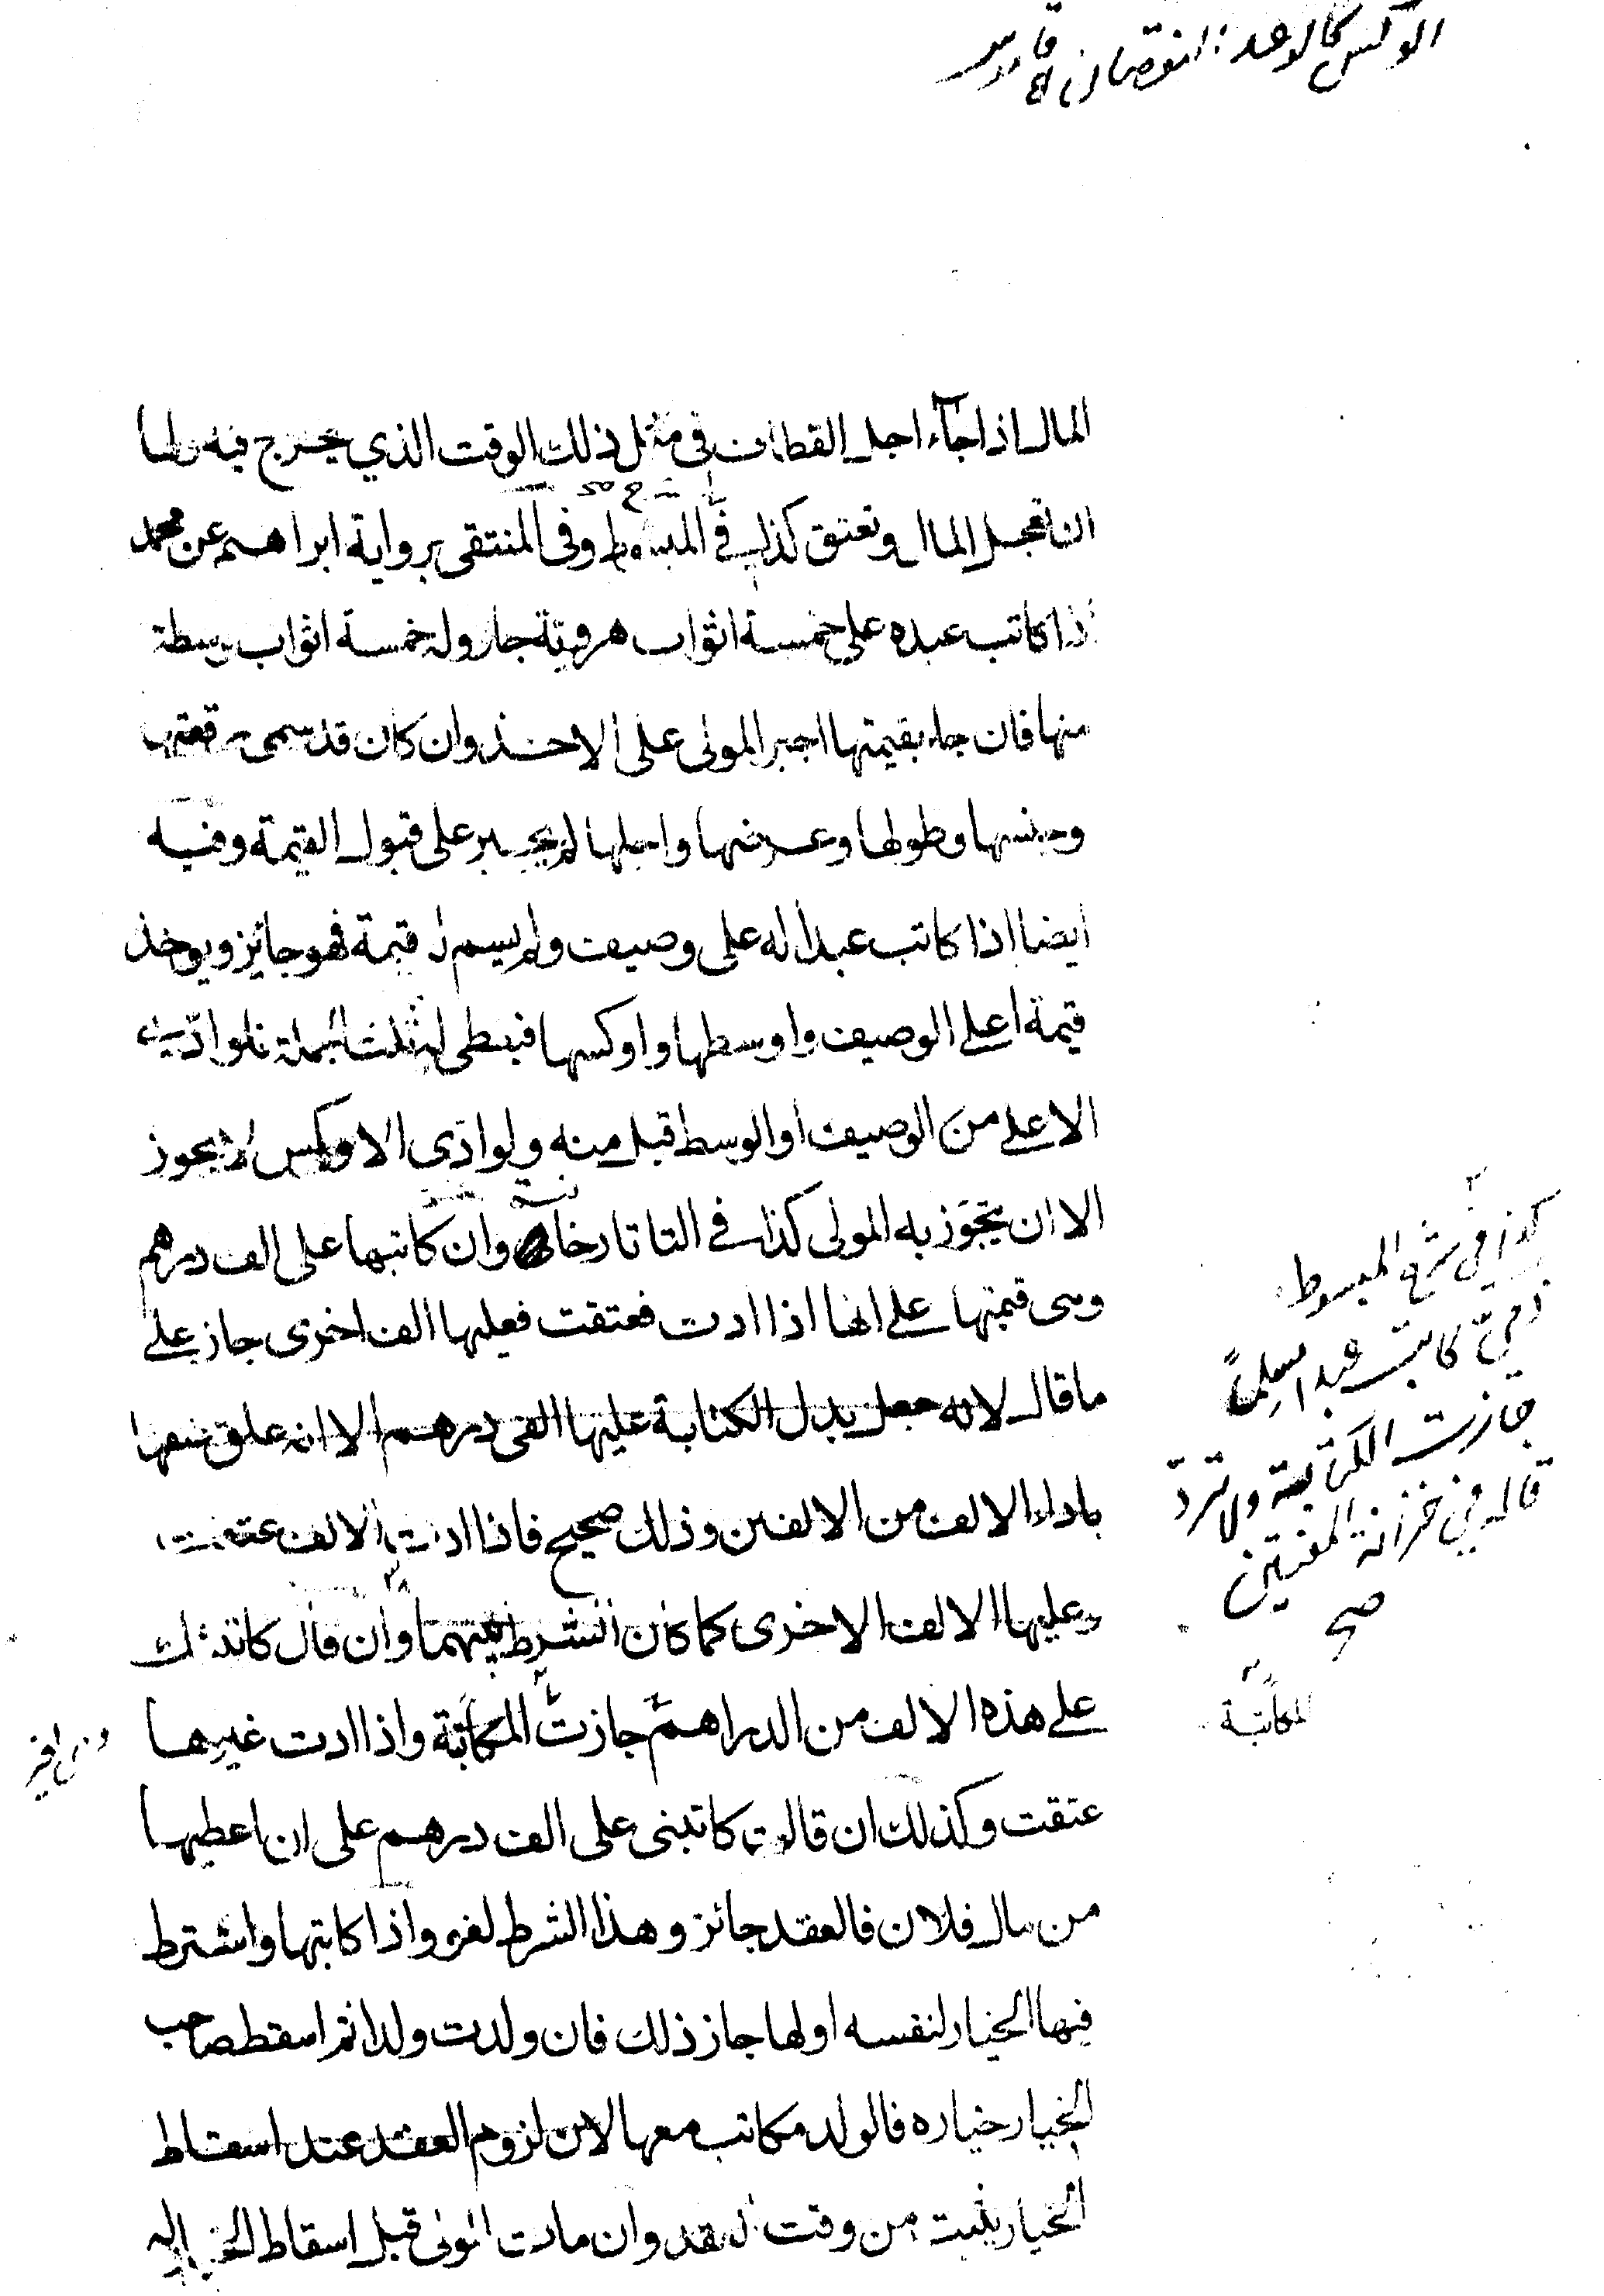 الوكس كالوعد: النقصان قاموس
المال اذا جآء اجل القطاف فى مثل ذلك الوقت الذي يخرج فيه ولها
ان تعجل المال وتعتق كذا في المبسوط وفى المنتقى برواية ابراهيم عن محمد
اذا كاتب عبده على خمسة اثواب هروية جاز وله خمسة اثواب وسطة
منها فان جاء بقيمتها اجبر المولى على الاخذ وان كان قد سمى رقعتها
وجنسها وطولها وعرضها واجلها لم يجبر على قبول القيمة وفيه
ايضا اذا كاتب عبدا له على وصيف ولم يسم له قيمة فهو جائز ويوخذ
قيمة اعلى الوصيف واوسطها واوكسها فيعطى له ثلث الجملة فلو ادّى
الاعلى من الوصيف او الوسط قبل منه ولو ادّى الاوكس لا يجوز
الا ان يتجوّز به المولى كذا في التاتارخانية وان كاتبها على الف درهم
وهى قيمتها على انها اذا ادت فعتقت فعليها الف اخرى جاز على
ما قال لانه جعل بدل الكتابة عليها الفى درهم الا انه علق عتقها
باداء الالف من الالفين وذلك صحيح فاذا ادت الالف عتقت
وعليها الالف الاخرى كما كان الشرط بينهما وان قال كاتبتك
على هذه الالف من الدراهم جازت المكاتبة واذا ادت غيرها
عتقت وكذلك ان قالت كاتبنى على الف درهم على ان اعطيها
من مال فلان فالعقد جائز وهذا الشرط لغو واذا كاتبها واشترط
فيها الخيار لنفسه او لها جاز ذلك فان ولدت ولدا ثم اسقط صاحب
الخيار خياره فالولد مكاتب معها لان لزوم العقد عند اسقاط
الخيار يثبت من وقت العقد وان ماتت المولى قبل اسقاط الخيار
كذا في شرح المبسوط
ذمي كاتب عبدا مسلماً
جازت الكتابة ولا تردّ
قاله في خزانة المفتين
صح
المكاتبة